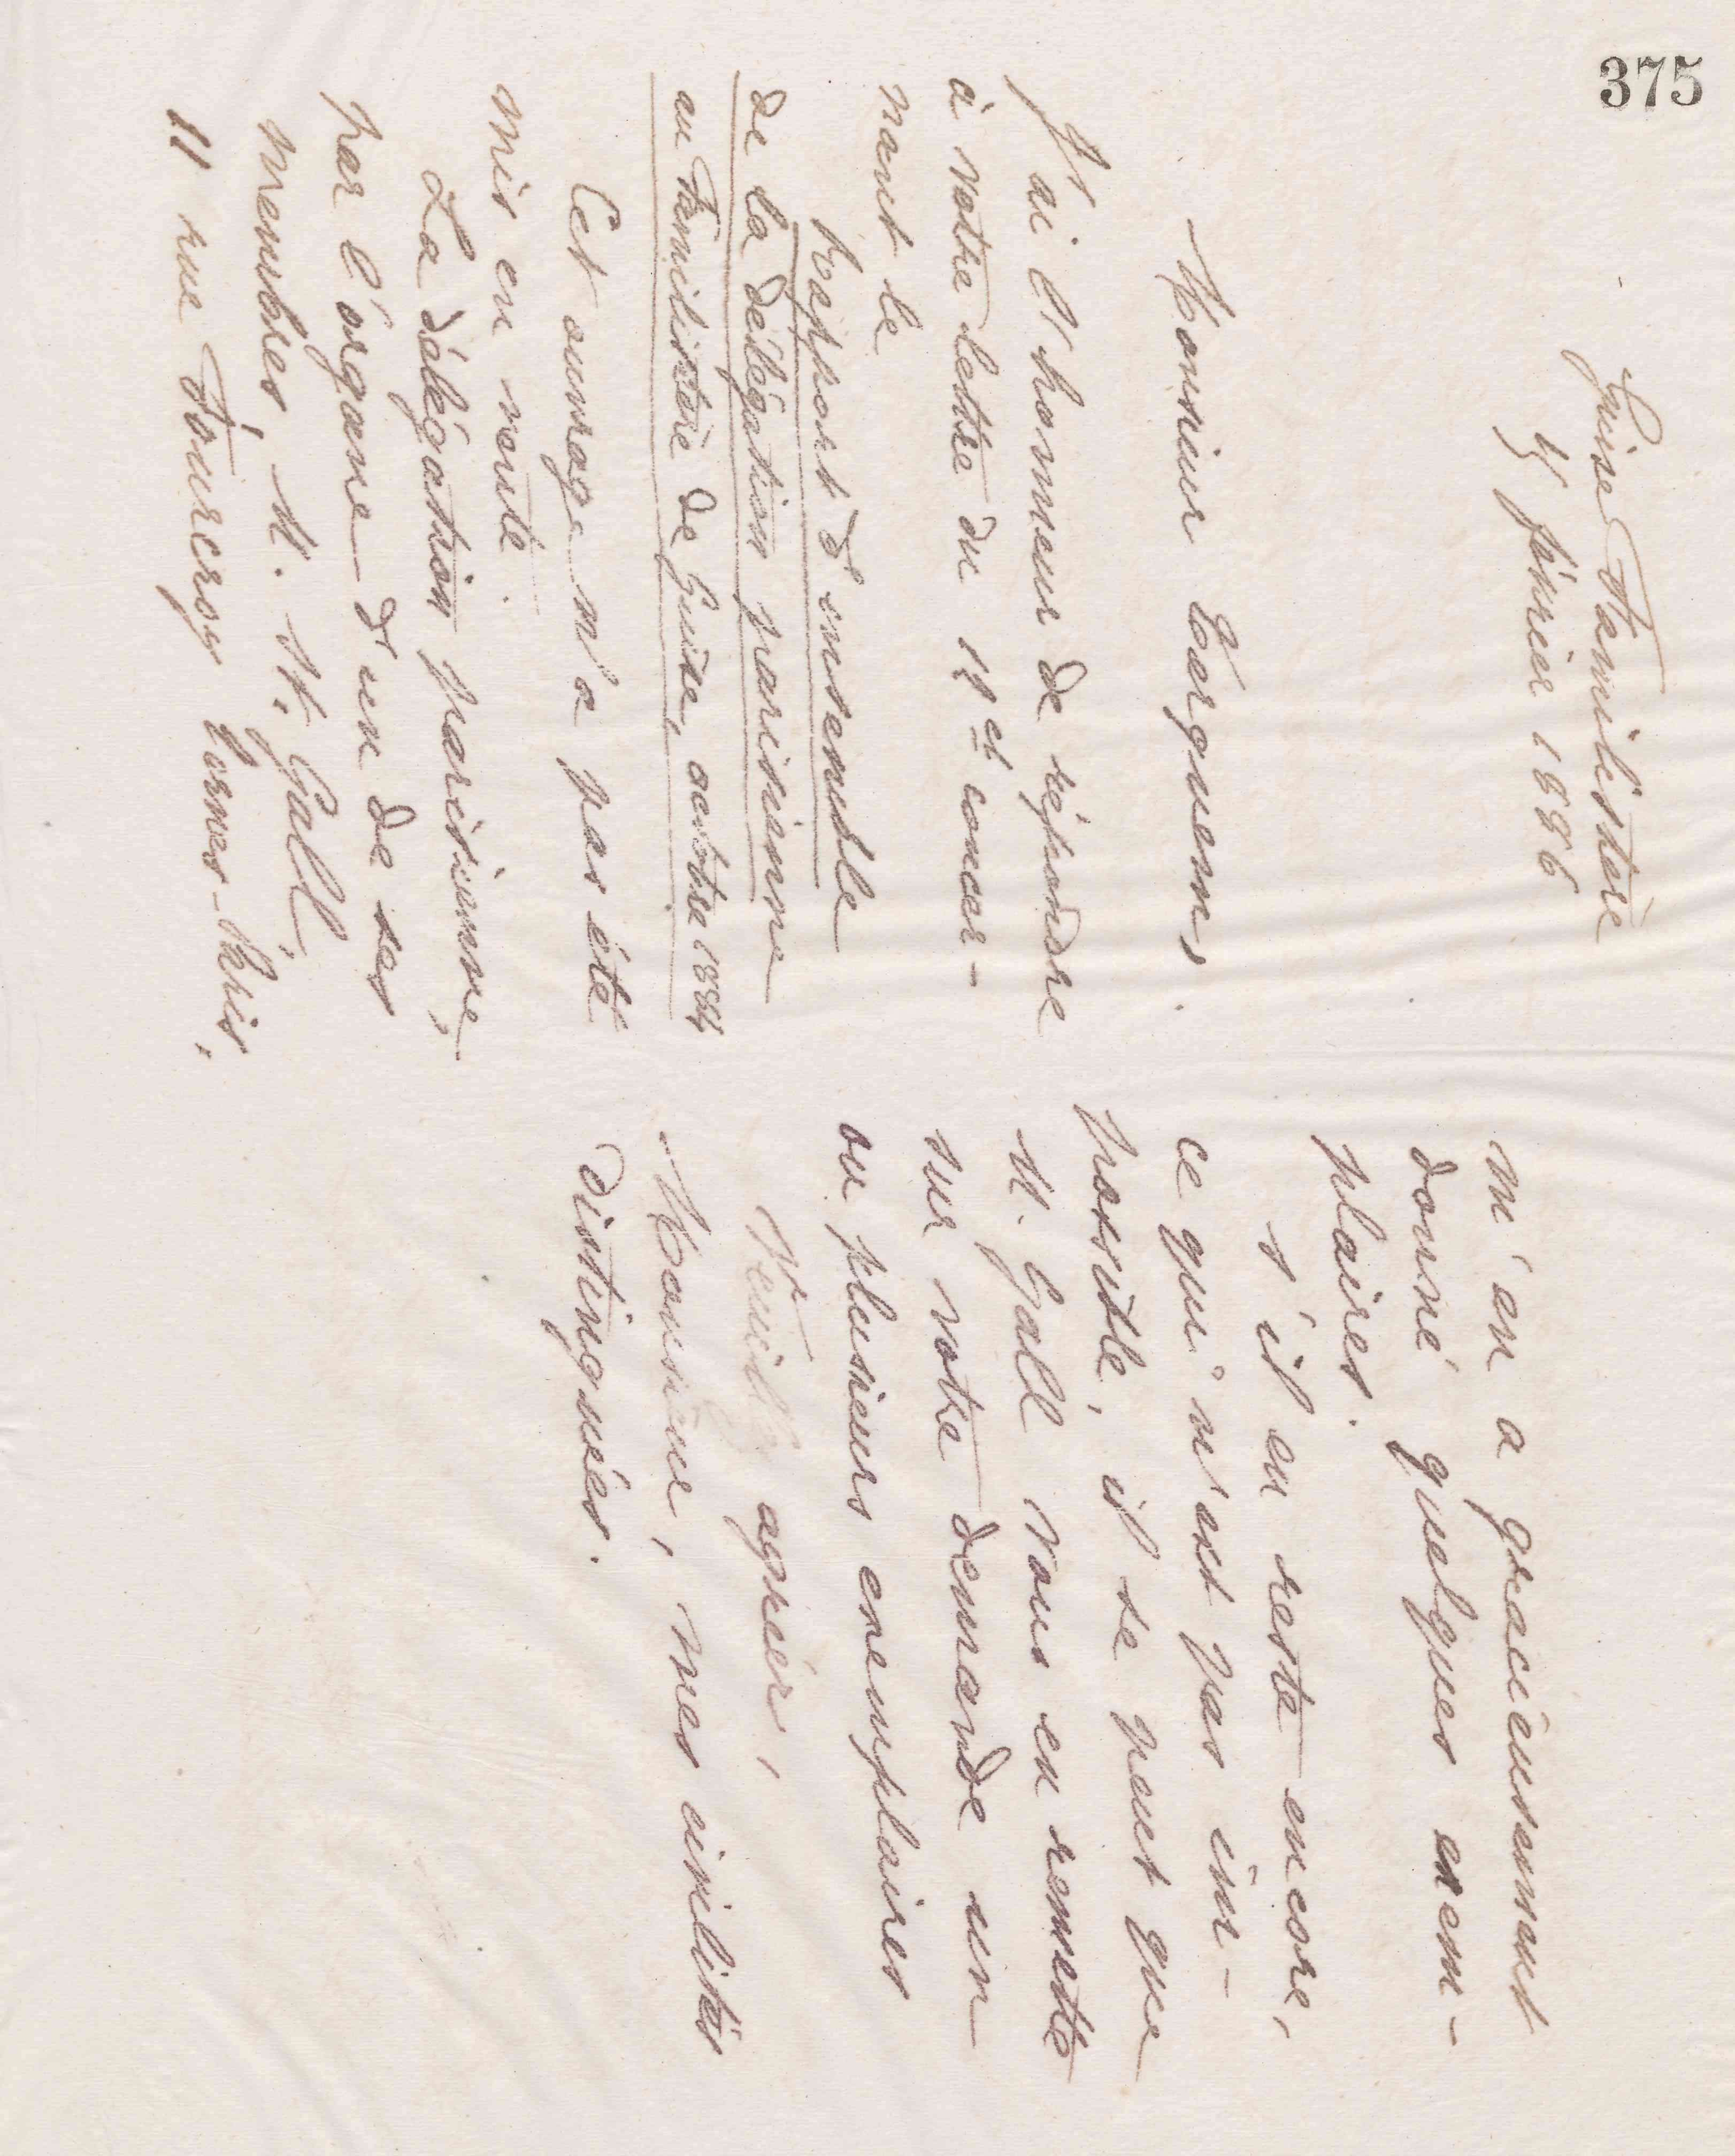 375
Guise Familistère
4 février 1886
Monsieur Carguem,
J'ai l'honneur de répondre
à votre lettre du 1er ct concer-
nant le
Rapport d'ensemble
de la délégation parisienne
au Familistère de Guise, octobre 1884
Cet ouvrage n'a pas été
mis en vente.
La délégation parisienne,
par l'organe d'un de ses
membres, M. St. Gall,
11 rue Fourcroy Ternes-Paris,
m'en a gracieusement
donné quelques exem-
plaires.
s'il en reste encore,
ce qui n'est pas im-
possible, il se peut que
M. Gall vous en remette
sur votre demande un
ou plusieurs exemplaires
Veuillez agréer,
Monsieur, mes civilités
distinguées.